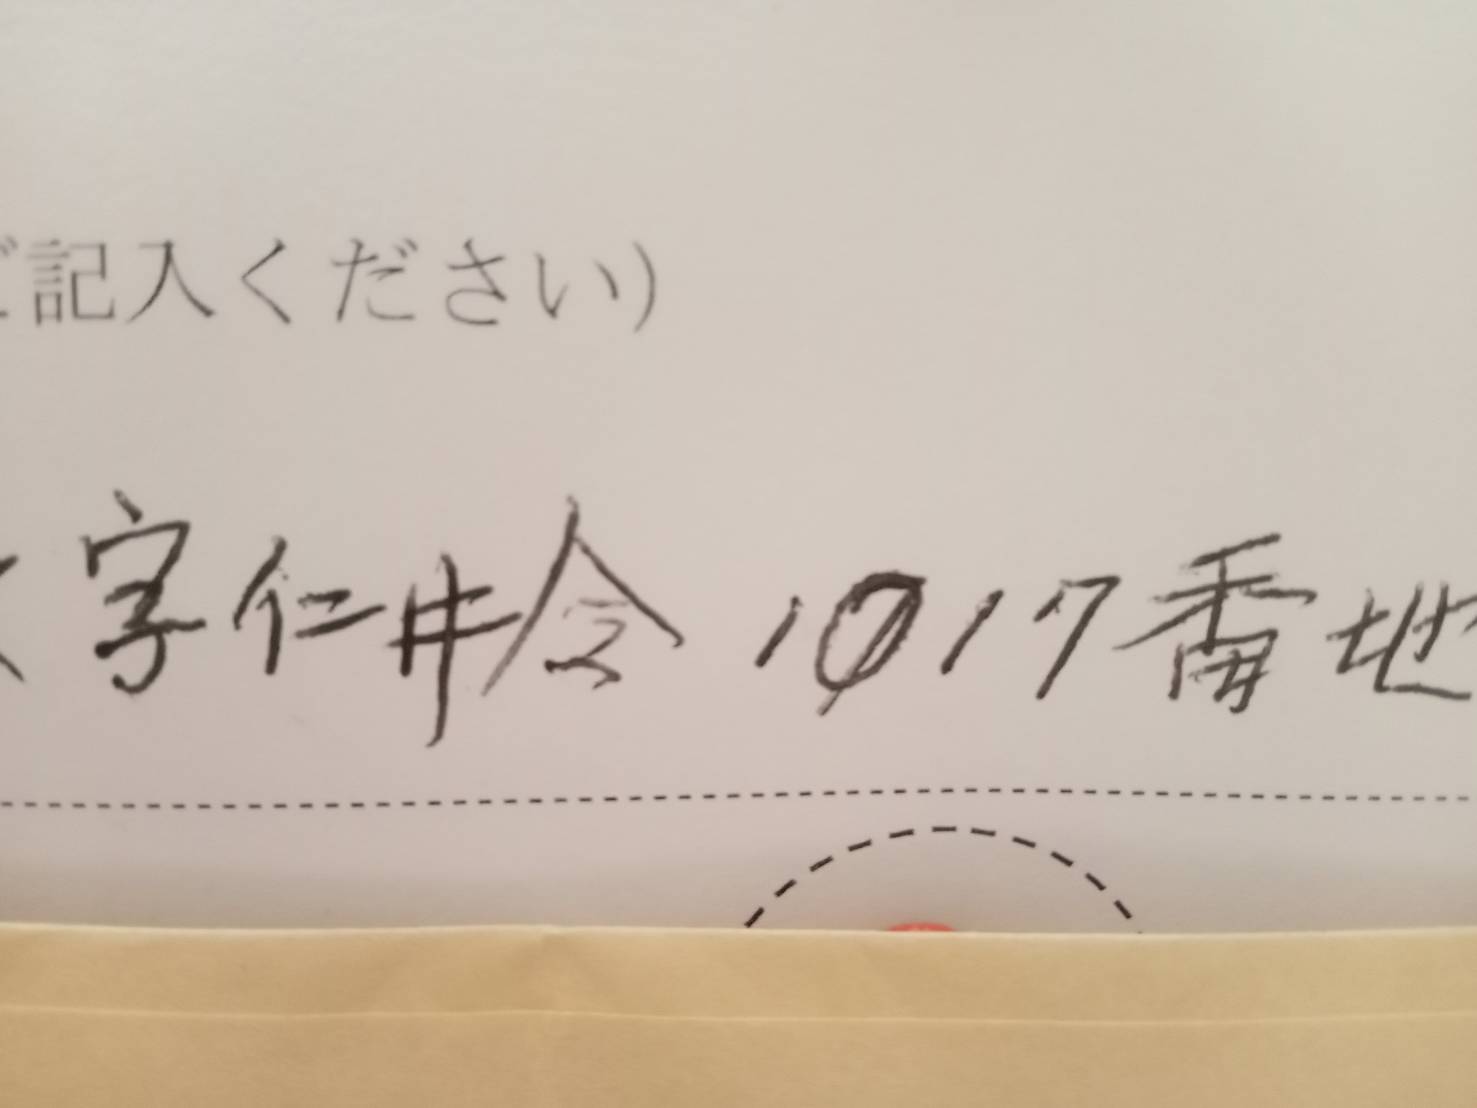 ご記入ください)
大字仁井令 1017番地